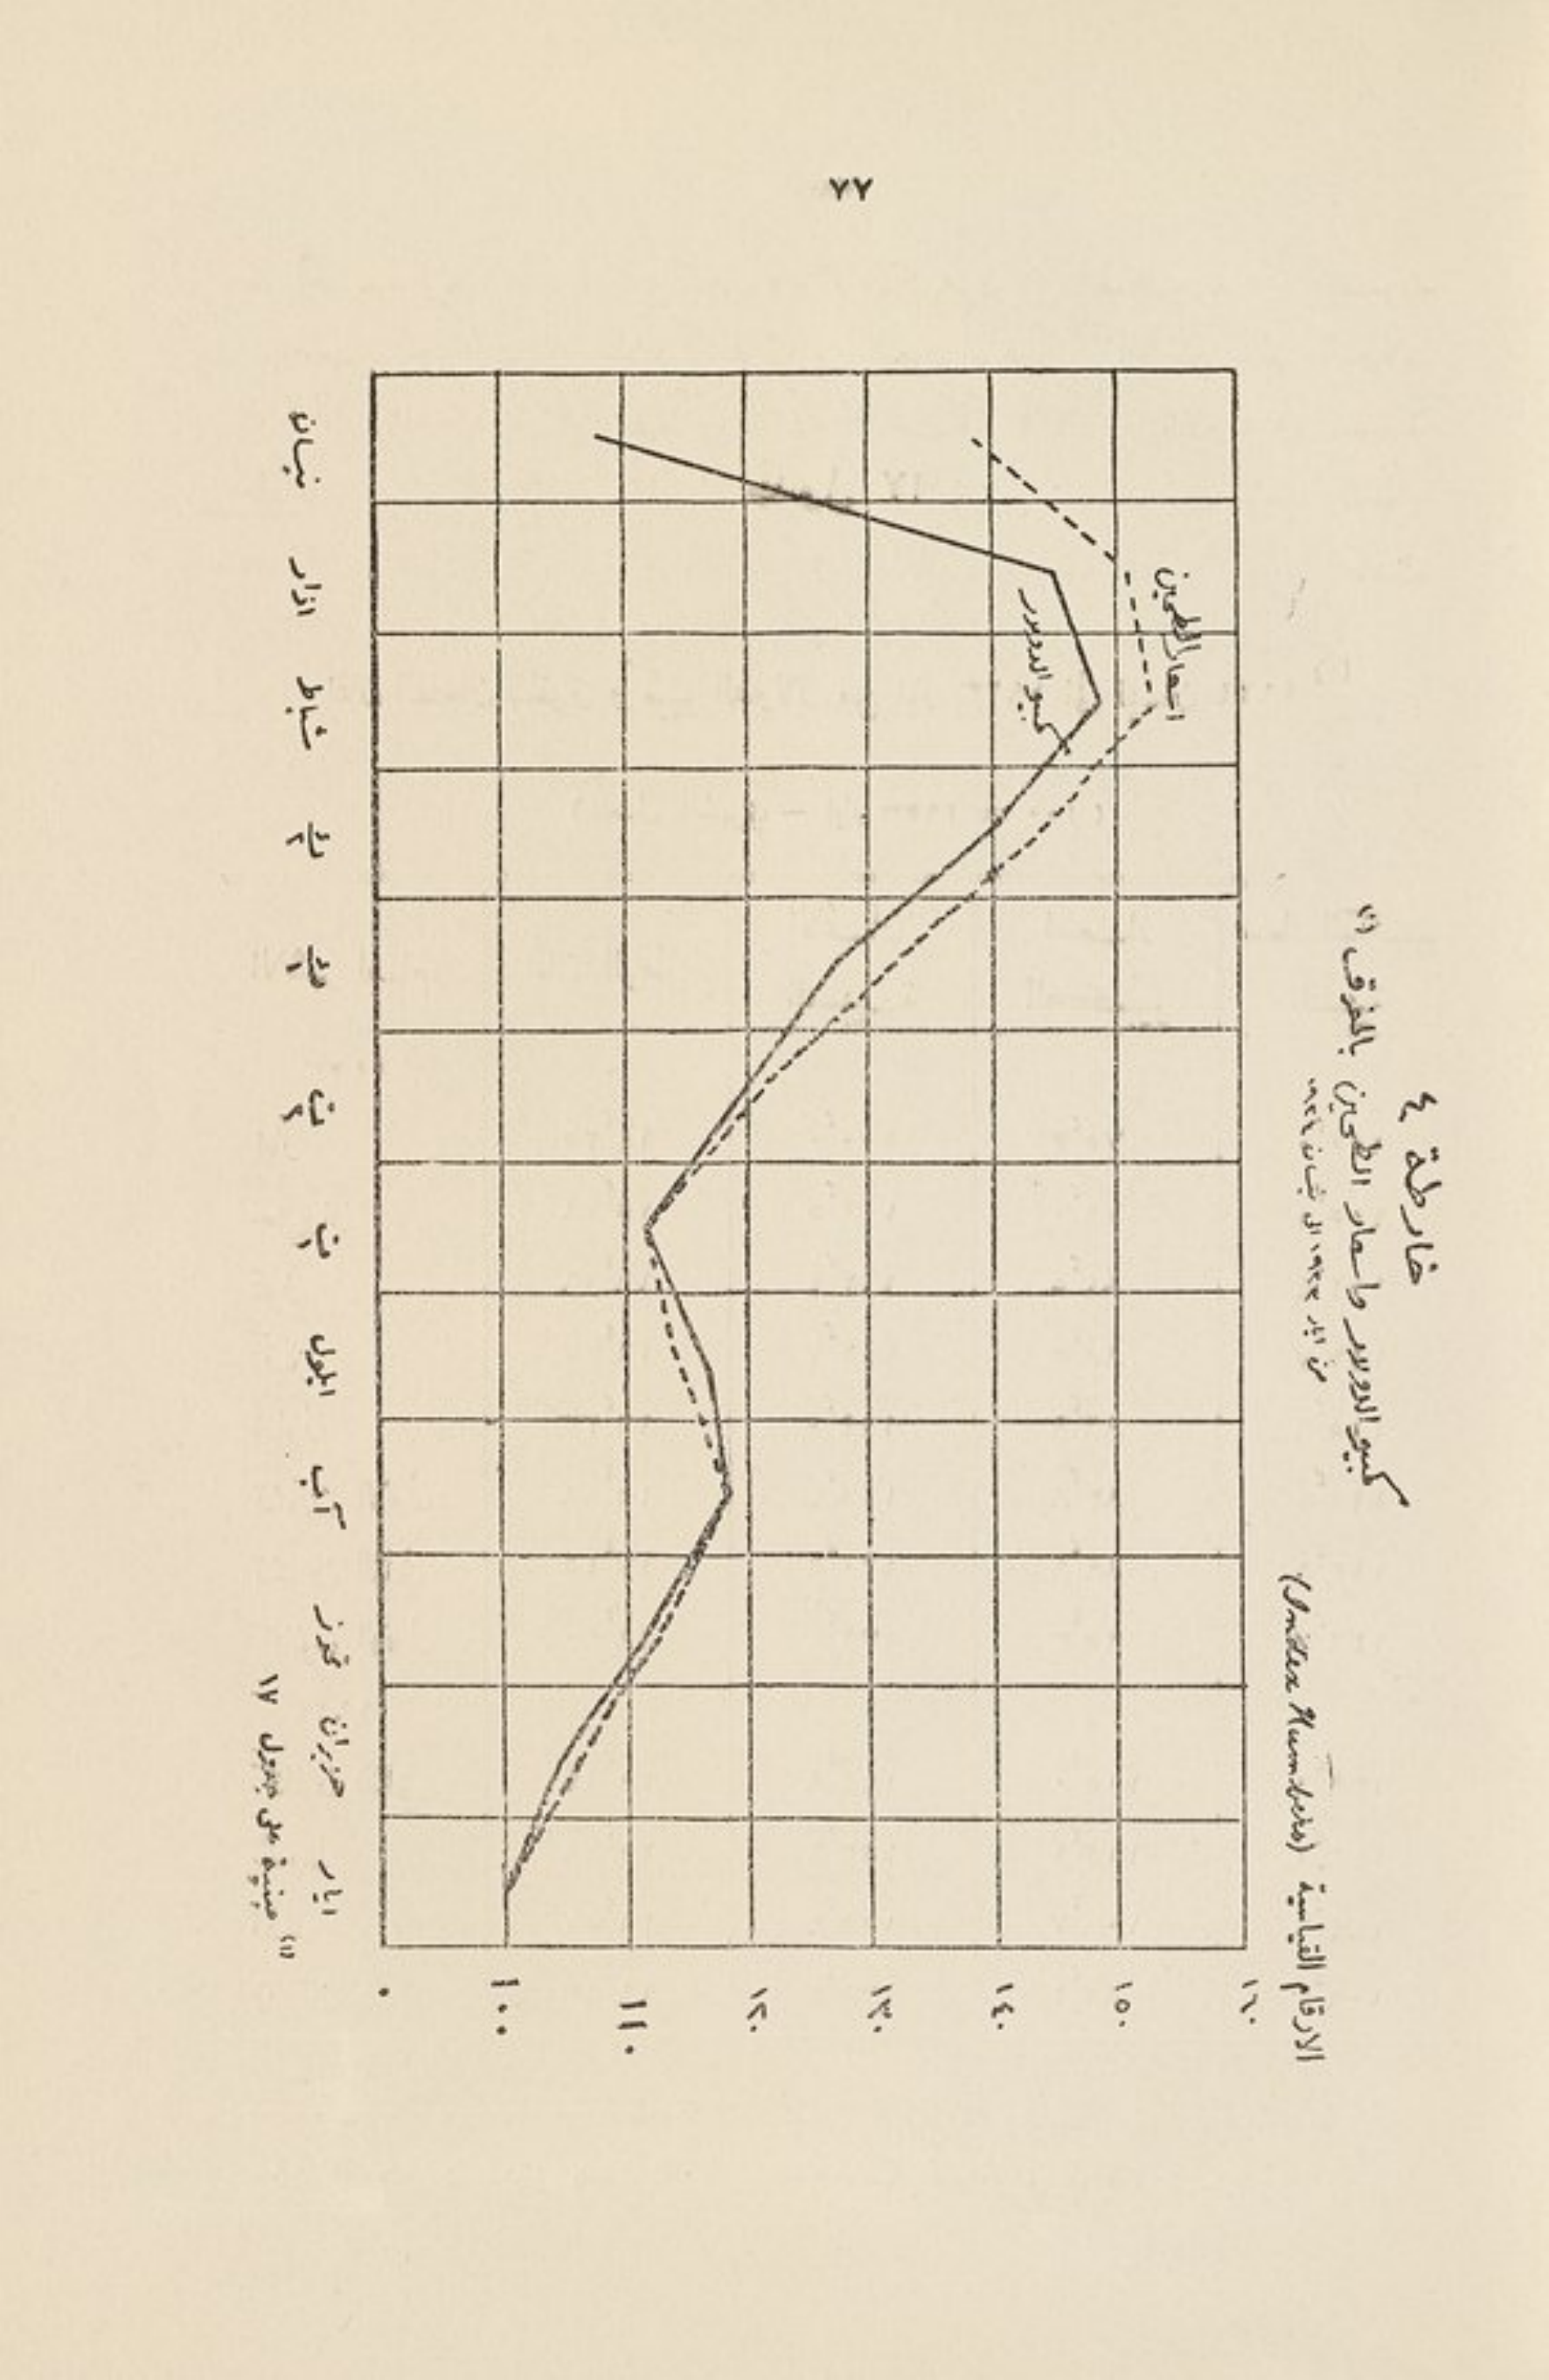 ٧٧
خارطة ٤
كمبيو الدولار واسعار الطحين بالمفرق (١)
من ايار ١٩٣٣ الى نيسان ١٩٣٤
الارقام القياسية (Index Numbers)
١٦٠
١٥٠
١٤٠
١٣٠
١٢٠
١١٠
١٠٠
٠
اسعار الطحين
كمبيو الدولار
ايار
حزيران
تموز
آب
ايلول
ت١
ت٢
ك١
ك٢
شباط
اذار
نيسان
(١) مبنية على جدول ١٧